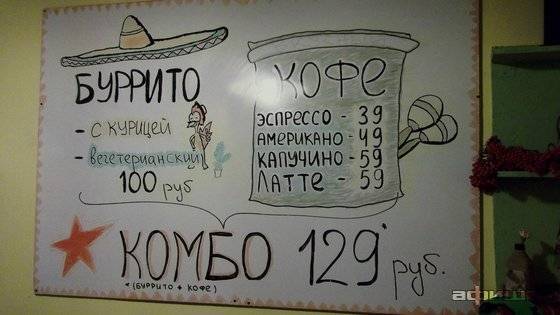 БУРРИТО
- С КУРИЦЕЙ
- вегетерианский
100 руб
КОФЕ
ЭСПРЕССО - 39
АМЕРИКАНО - 49
КАПУЧИНО - 59
ЛАТТЕ - 59
КОМБО 129 руб.
*(БУРРИТО + КОФЕ)